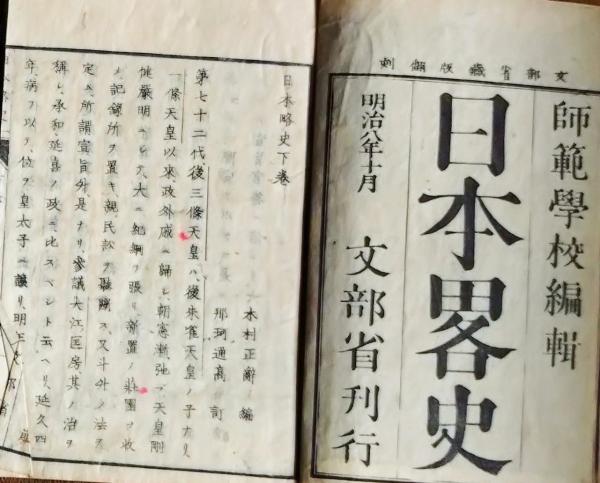 文部省藏版翻刻
師範學校編輯
日本畧史
明治八年十月 文部省刊行
日本略史下卷
木村正辭 編
那珂通高 訂
第七十二代後三條天皇ハ後朱雀天皇ノ子ナリ
一條天皇以來政外戚ニ歸シ朝憲漸弛フ天皇剛
健嚴明ニシテ大ニ紀綱ヲ張リ新置ノ莊園ヲ收
メ記録所ヲ置キ親民訟ヲ聽斷ス又斗升ノ法ヲ
定ム所謂宣旨升是ナリ參議大江匡房其ノ治ヲ
稱シ承和延喜ノ政ニ比スベシト云ヘリ延久四
年病ヲ以テ位ヲ皇太子ニ讓リ明